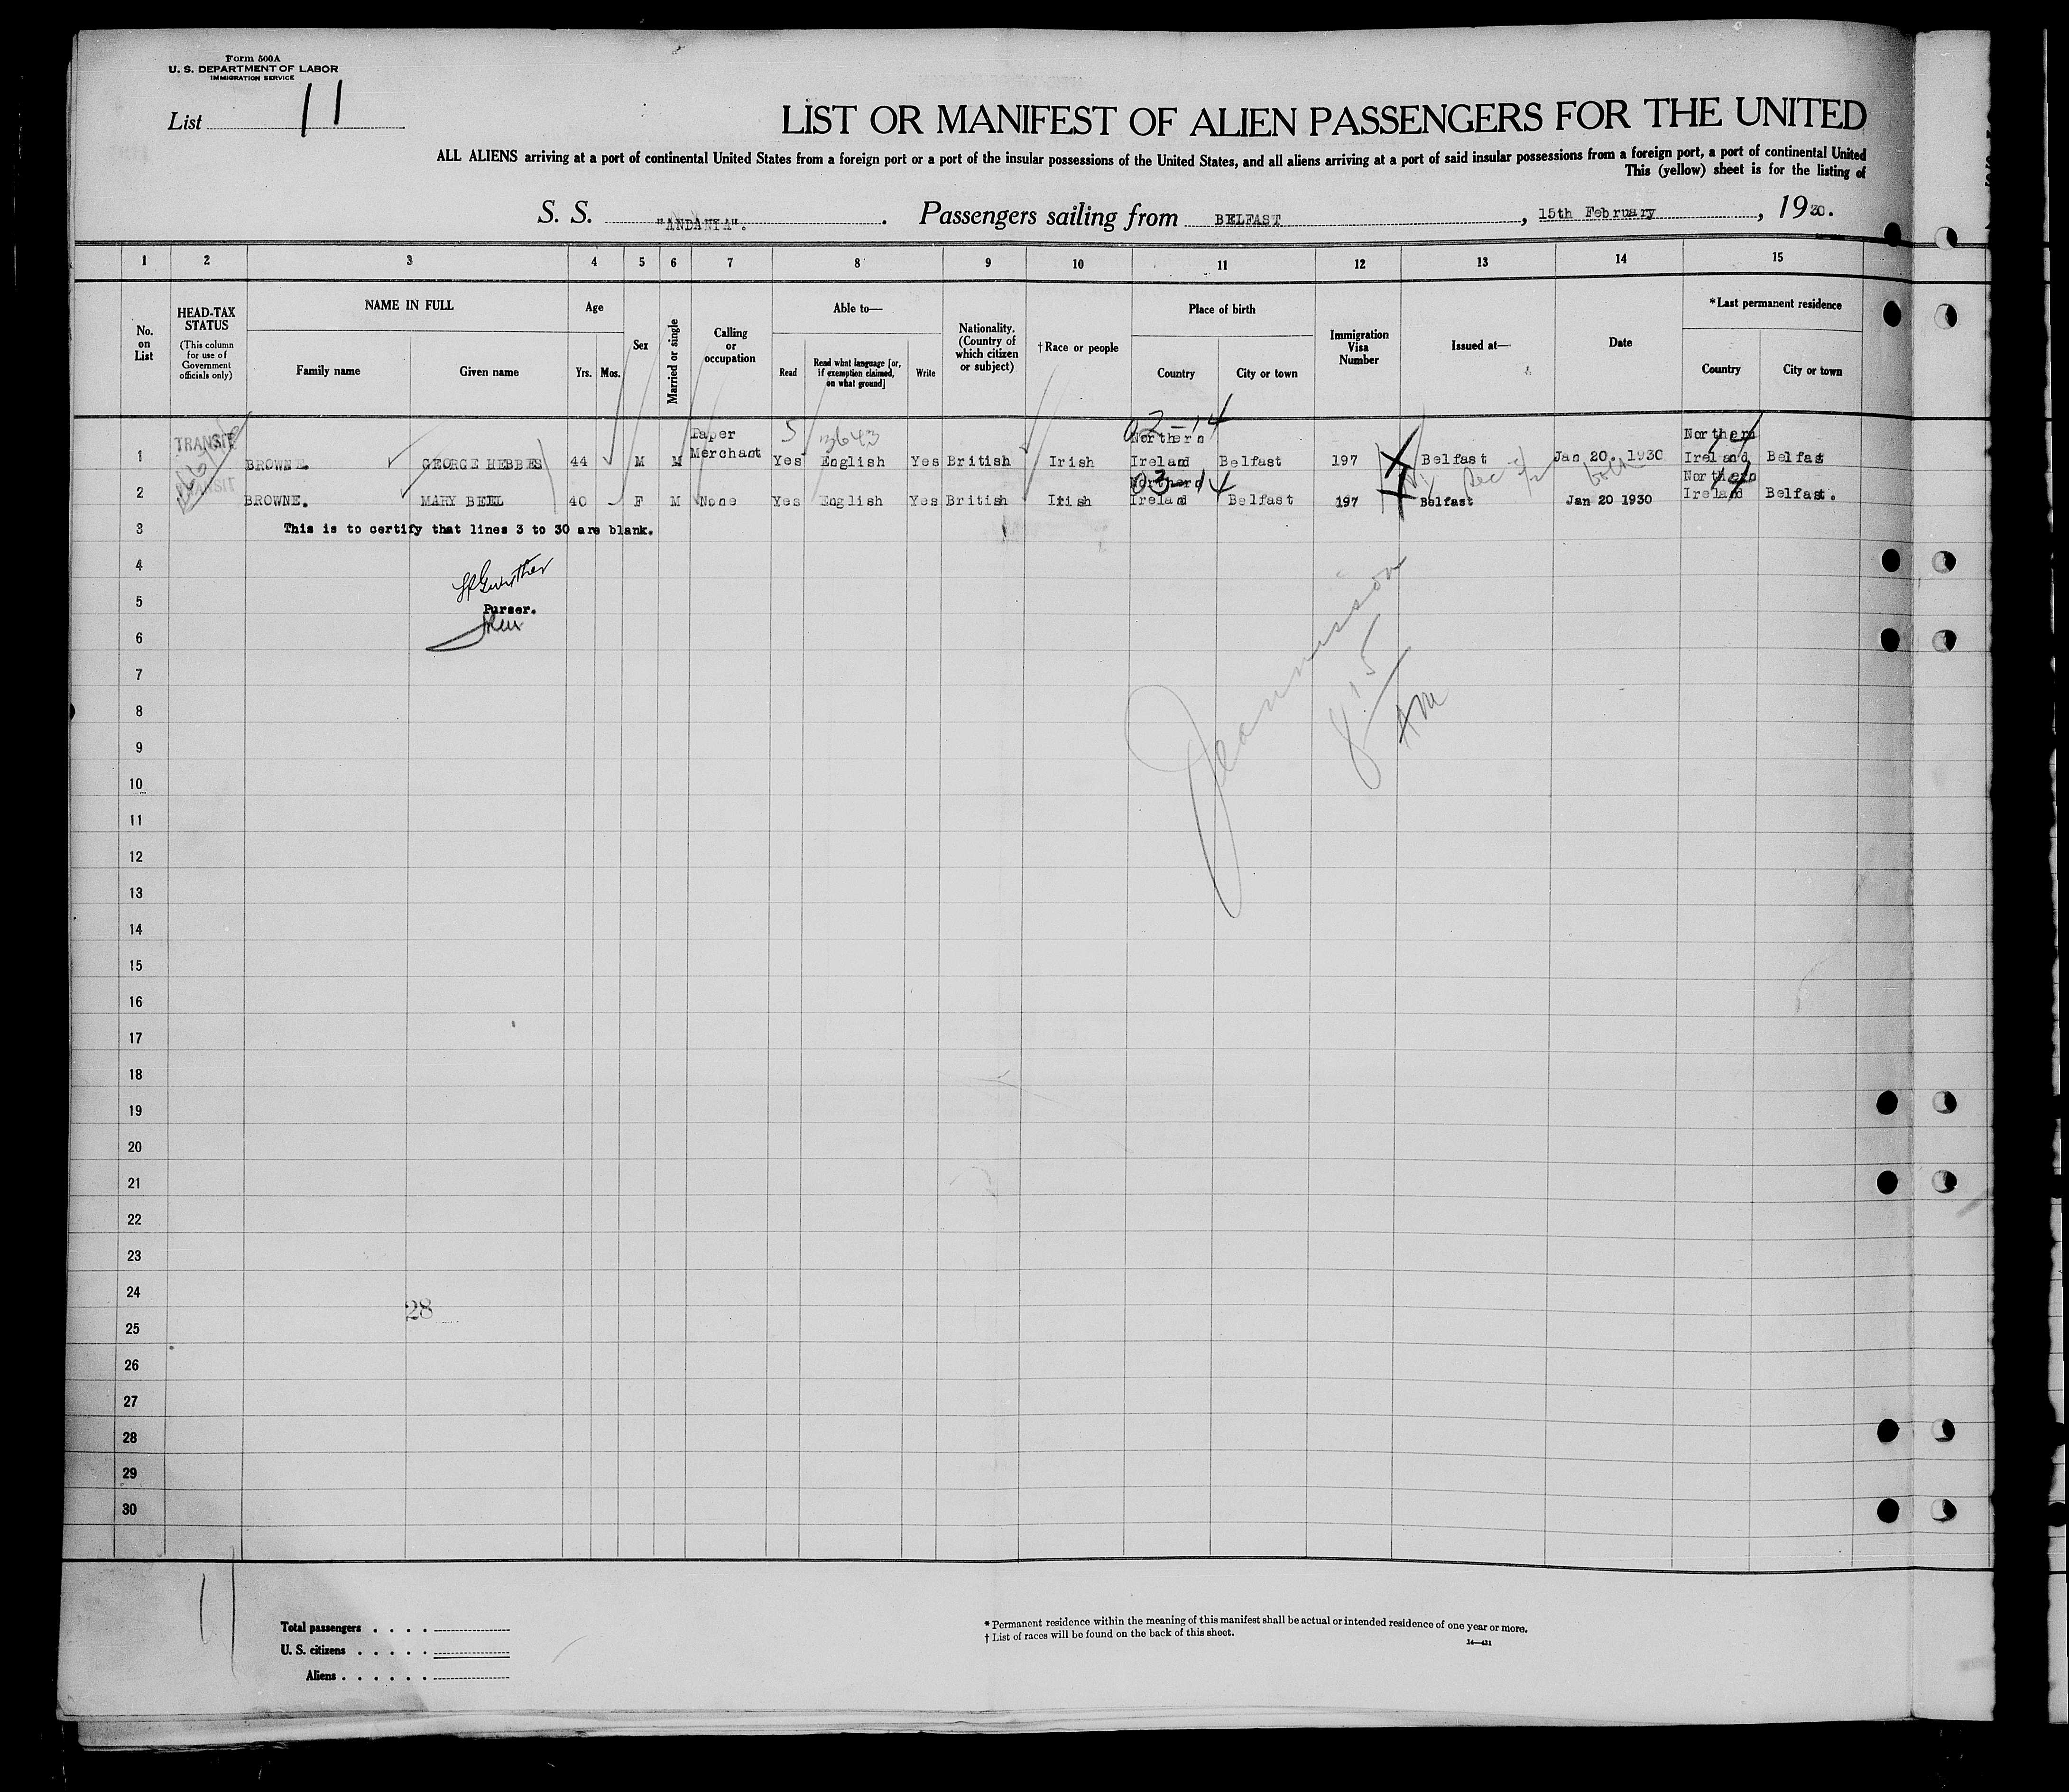 Form 500A
U. S. DEPARTMENT OF LABOR
IMMIGRATION SERVICE
List 11
LIST OR MANIFEST OF ALIEN PASSENGERS FOR THE UNITED
ALL ALIENS arriving at a port of continental United States from a foreign port or a port of the insular possessions of the United States, and all aliens arriving at a port of said insular possessions from a foreign port, a port of continental United
This (yellow) sheet is for the listing of
S. S. "ANDANIA". Passengers sailing from BELFAST, 15th February, 1930.
1 2 3 4 5 6 7 8 9 10 11 12 13 14 15
No. on List
HEAD-TAX STATUS
(This column for use of Government officials only)
NAME IN FULL
Family name Given name
Age
Yrs. Mos.
Sex
Married or single
Calling or occupation
Able to—
Read
Read what language [or, if exemption claimed, on what ground]
Write
Nationality. (Country of which citizen or subject)
†Race or people
Place of birth
Country City or town
Immigration Visa Number
Issued at—
Date
*Last permanent residence
Country City or town
02-14
TRANSIT Paper 5 3643 Northern Northern 14
1 BROWNE. GEORGE HEBBES 44 M M Merchant Yes English Yes British Irish Ireland Belfast 197 X Belfast Jan 20. 1930 Ireland Belfas
TRANSIT 03 14 Northern Northern 14
2 BROWNE. MARY BELL 40 F M None Yes English Yes British Irish Ireland Belfast 197 Belfast Jan 20 1930 Ireland Belfast.
3 This is to certify that lines 3 to 30 are blank.
4
5 Purser.
6
7
8
Jeannisson
8 15
AM
9
10
11
12
13
14
15
16
17
18
19
20
21
22
23
24
28
25
26
27
28
29
30
11
Total passengers . . . .
U. S. citizens . . . . .
Aliens . . . . . .
* Permanent residence within the meaning of this manifest shall be actual or intended residence of one year or more.
† List of races will be found on the back of this sheet.
14—431